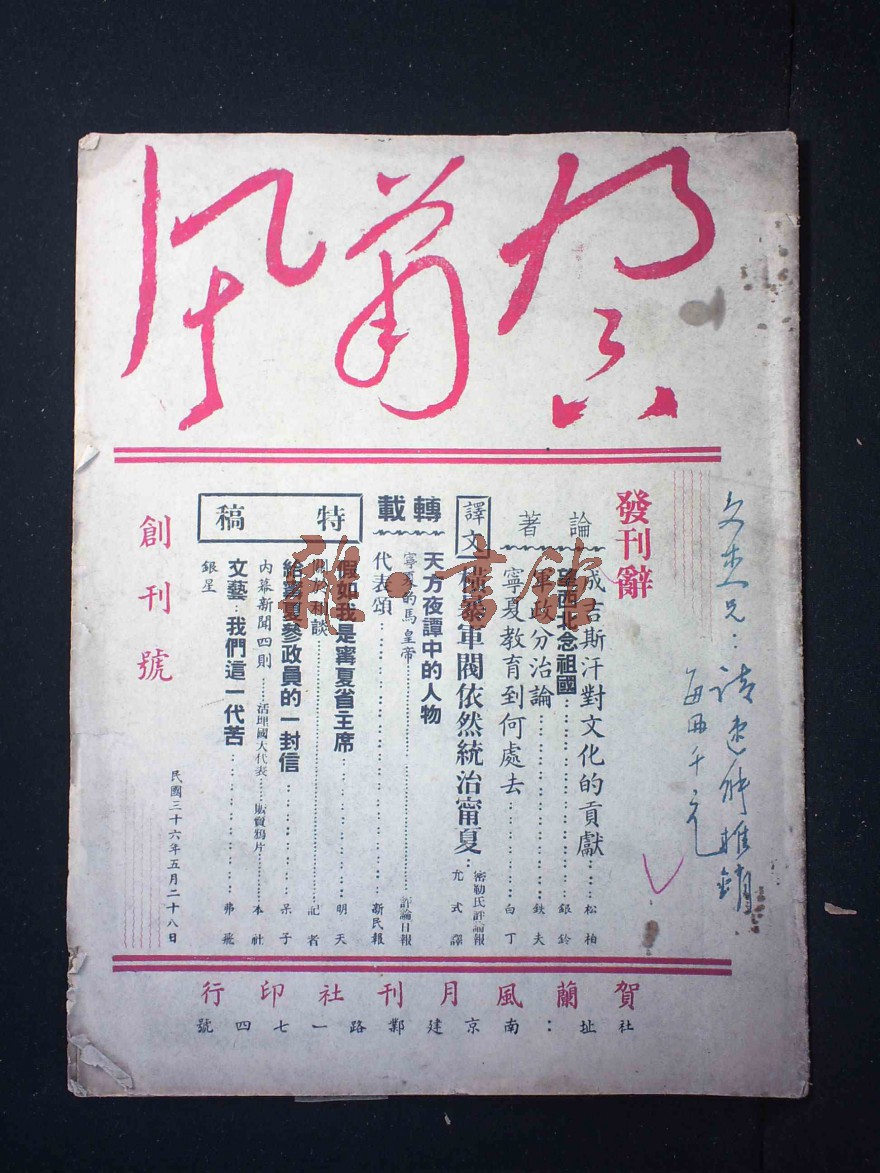 賀蘭風
發刊辭
論著
成吉斯汗對文化的貢獻……松柏
望西北念祖國……銀鈴
軍政分治論……鉄夫
寧夏教育到何處去……白丁
譯文
橫暴軍閥依然統治甯夏…密勒氏評論報 尤式譯
轉載
天方夜譚中的人物
寧夏的馬皇帝……評論日報
代表頌……新民報
特稿
假如我是寗夏省主席……明天
關於和談……記者
給寗夏參政員的一封信……呆子
內幕新聞四則……活埋國大代表……販賣鴉片……本社
文藝：我們這一代苦……弗飛
銀星
創刊號
民國三十六年五月二十八日
賀蘭風月刊社印行
社址：南京建鄴路一七四號
文杰兄：請速師推銷
每冊千元
雜·書館